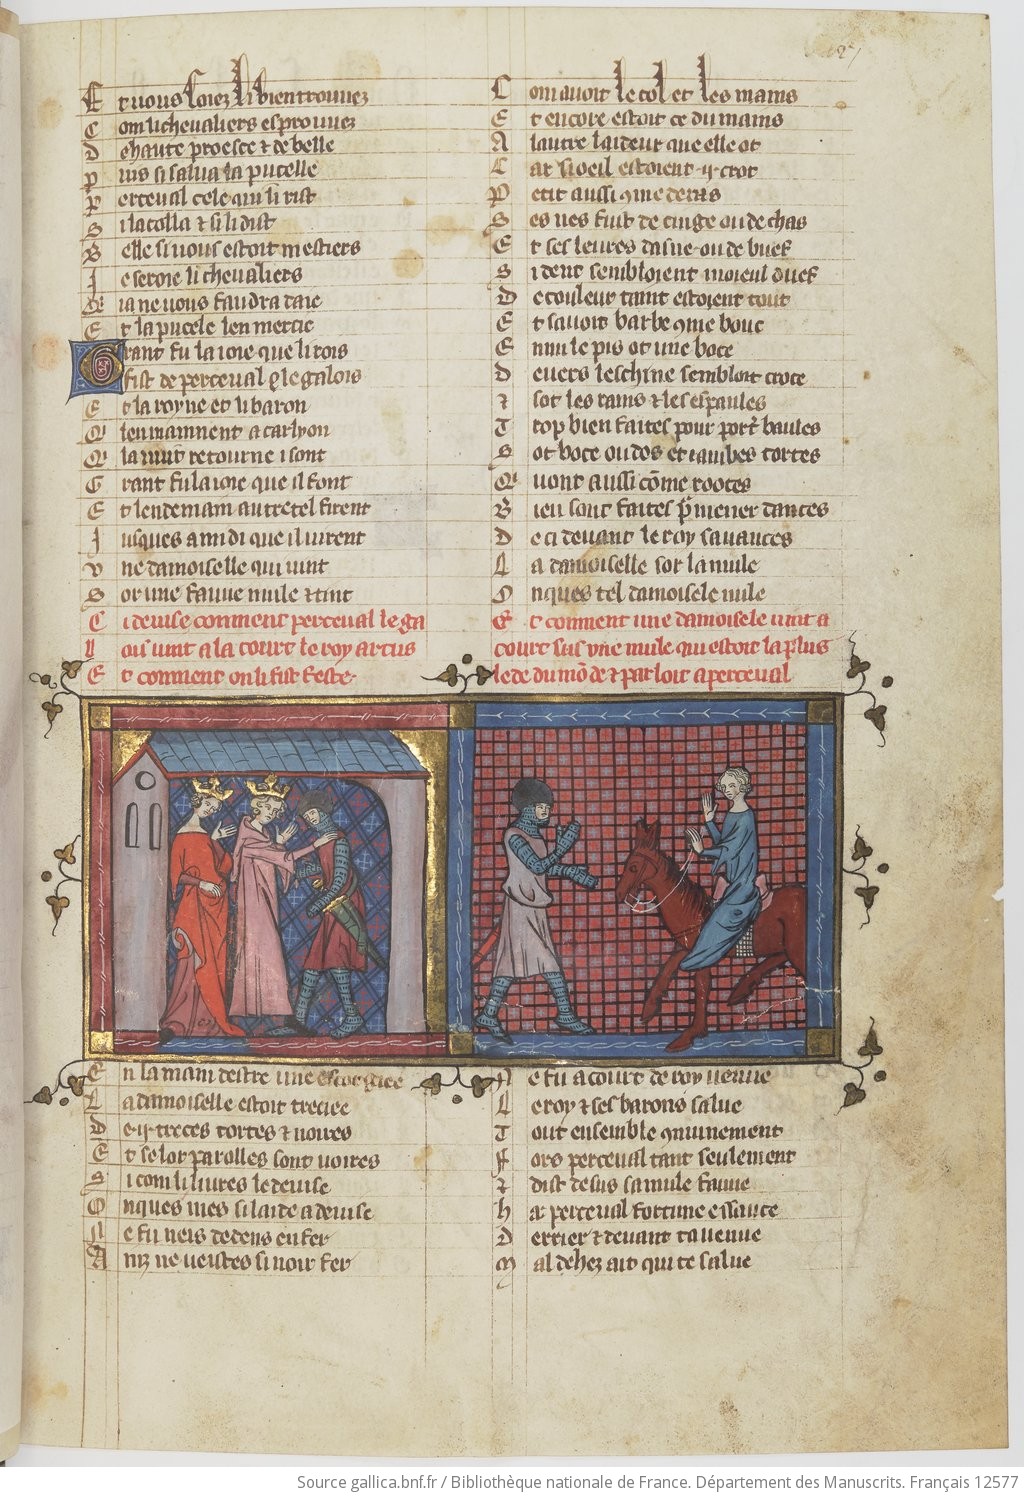 27
Et vous soiez li bien trouvez
Com li chevaliers esprouvez
De haute proesce & de belle
Puis si salua la pucelle
Perceval cele qui li rist
Si lacolla & si li dist
Belle si vous estoit mestiers
Je seroie li chevaliers
Qi ia ne vous faudra daie
Et la pucele len mercie
Grant fu la ioie que li rois
fist de perceval le galois
Et la royne et li baron
Qi lenmainnent a carlyon
Qi la nuit retourne i sont
Grant fu la ioie que il font
Et lendemain autretel firent
Jusques a midi que il virent
Une damoiselle qui vint
Sor une fauve mule & tint
Ci devise comment perceval le ga
lois vint a la court le roy artus
Et comment on li fist feste
En la main destre une escorgiee
La damoiselle estoit treciee
De .ij. treces tortes & noires
Et se lor parolles sont voires
Si com li livres le devise
Onques mes si laide a devise
Ne fu neis dedens enfer
Ainz ne veistes si noir fer
Com avoit le col et les mains
Et encore estoit ce du mains
A lautre laideur que elle ot
Car si oeil estoient .ij. crot
Petit aussi ome de ras
Ses nes fuit de cinge ou de chas
Et ses levres dasne ou de buef
Si dent sembloient moieul duef
De couleur tant estoient rout
Et savoit barbe ome bouc
Enmi le pis ot une boce
Devers leschine sembloit croce
& sot les rains & les espaules
Trop bien faites pour port' baules
Sot boce ou dos et iambes tortes
Qi vont aussi cōme rootes
Bien sont faites p' mener dances
De ci devant le roy savances
La damoiselle sor la mule
Onques tel damoisele nule
Et comment une damoisele vint a
court sus vne mule qui estoit la plus
lede du mōde & parloit a perceval
Ne fu a court de roy venue
Le roy & ses barons salue
Tout ensemble qmunement
Fors perceval tant seulement
& dist desus sa mule fauve
Ha perceval fortune est sauce
Derrier & devant ta venue
Mal dehez ait qui te salue
Source gallica.bnf.fr / Bibliothèque nationale de France. Département des Manuscrits. Français 12577